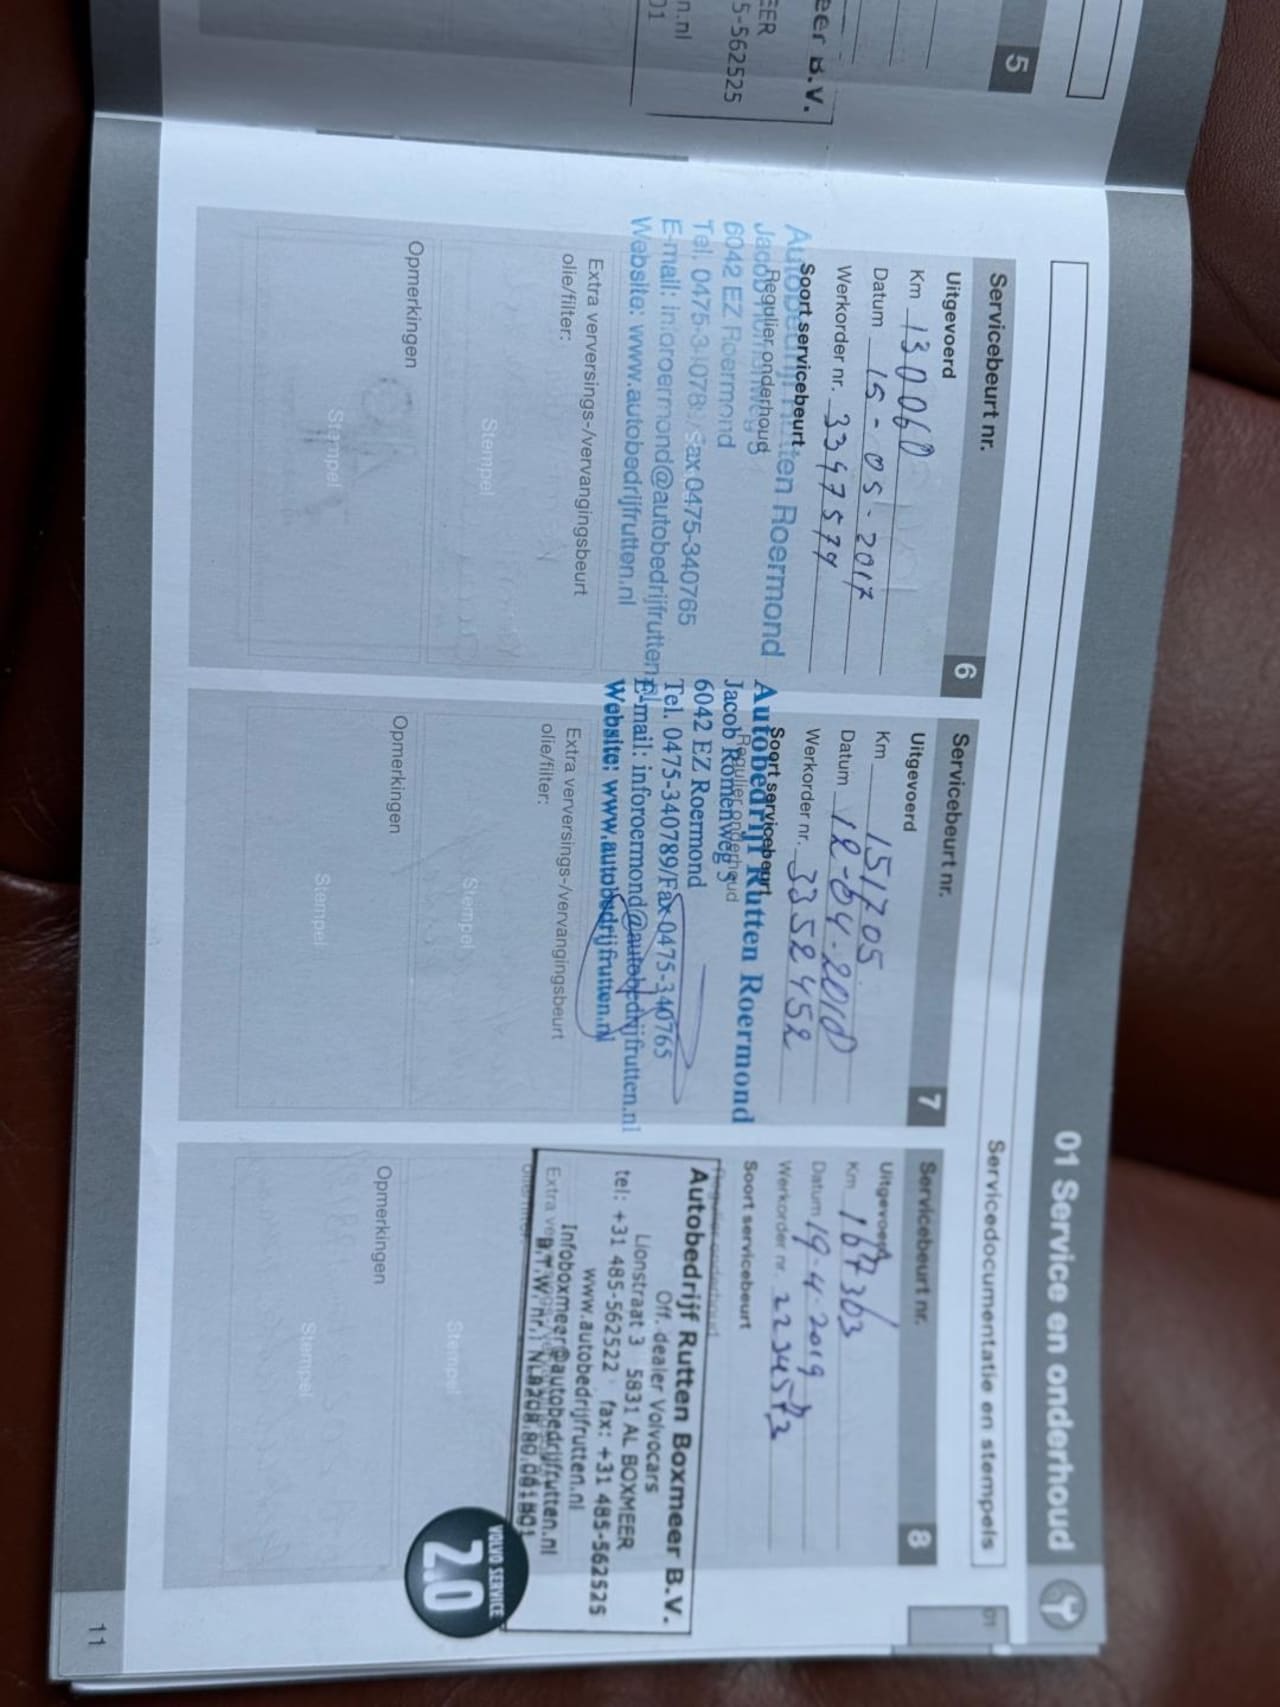 5
eer B.V.
EER
5-562525
n.nl
01
01 Service en onderhoud
Servicedocumentatie en stempels
01
Servicebeurt nr. 6
Uitgevoerd
Km 130060
Datum 15-05-2017
Werkorder nr. 3347574
Soort servicebeurt
Regulier onderhoud
Autobedrijf Rutten Roermond
Jacob Romenweg 5
6042 EZ Roermond
Tel. 0475-340789/Fax 0475-340765
E-mail: inforoermond@autobedrijfrutten.nl
Website: www.autobedrijfrutten.nl
Extra verversings-/vervangingsbeurt
olie/filter:
Stempel
Opmerkingen
Stempel
Servicebeurt nr. 7
Uitgevoerd
Km 151705
Datum
Werkorder nr. 3352452
Soort servicebeurt
Regulier onderhoud
Autobedrijf Rutten Roermond
Jacob Romenweg 5
6042 EZ Roermond
Tel. 0475-340789/Fax 0475-340765
E-mail: inforoermond@autobedrijfrutten.nl
Website: www.autobedrijfrutten.nl
Extra verversings-/vervangingsbeurt
olie/filter:
Stempel
Opmerkingen
Stempel
Servicebeurt nr. 8
Uitgevoerd
Km 167303
Datum 19-4-2019
Werkorder nr. 2234573
Soort servicebeurt
Regulier onderhoud
Autobedrijf Rutten Boxmeer B.V.
Off. dealer Volvocars
Lionstraat 3 5831 AL BOXMEER
tel: +31 485-562522 fax: +31 485-562525
www.autobedrijfrutten.nl
Infoboxmeer@autobedrijfrutten.nl
B.T.W. nr.:
Extra
VOLVO SERVICE
2.0
Stempel
Opmerkingen
Stempel
11